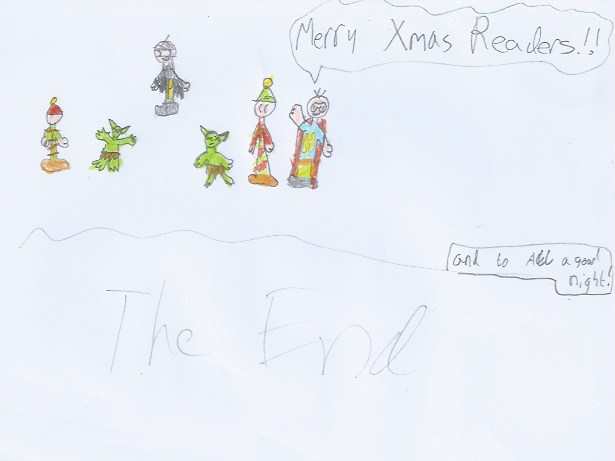 Merry Xmas Readers.!!
and to All a good
night!
The End